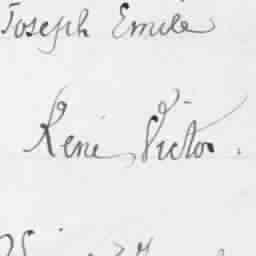 Joseph Emile
René Victor.